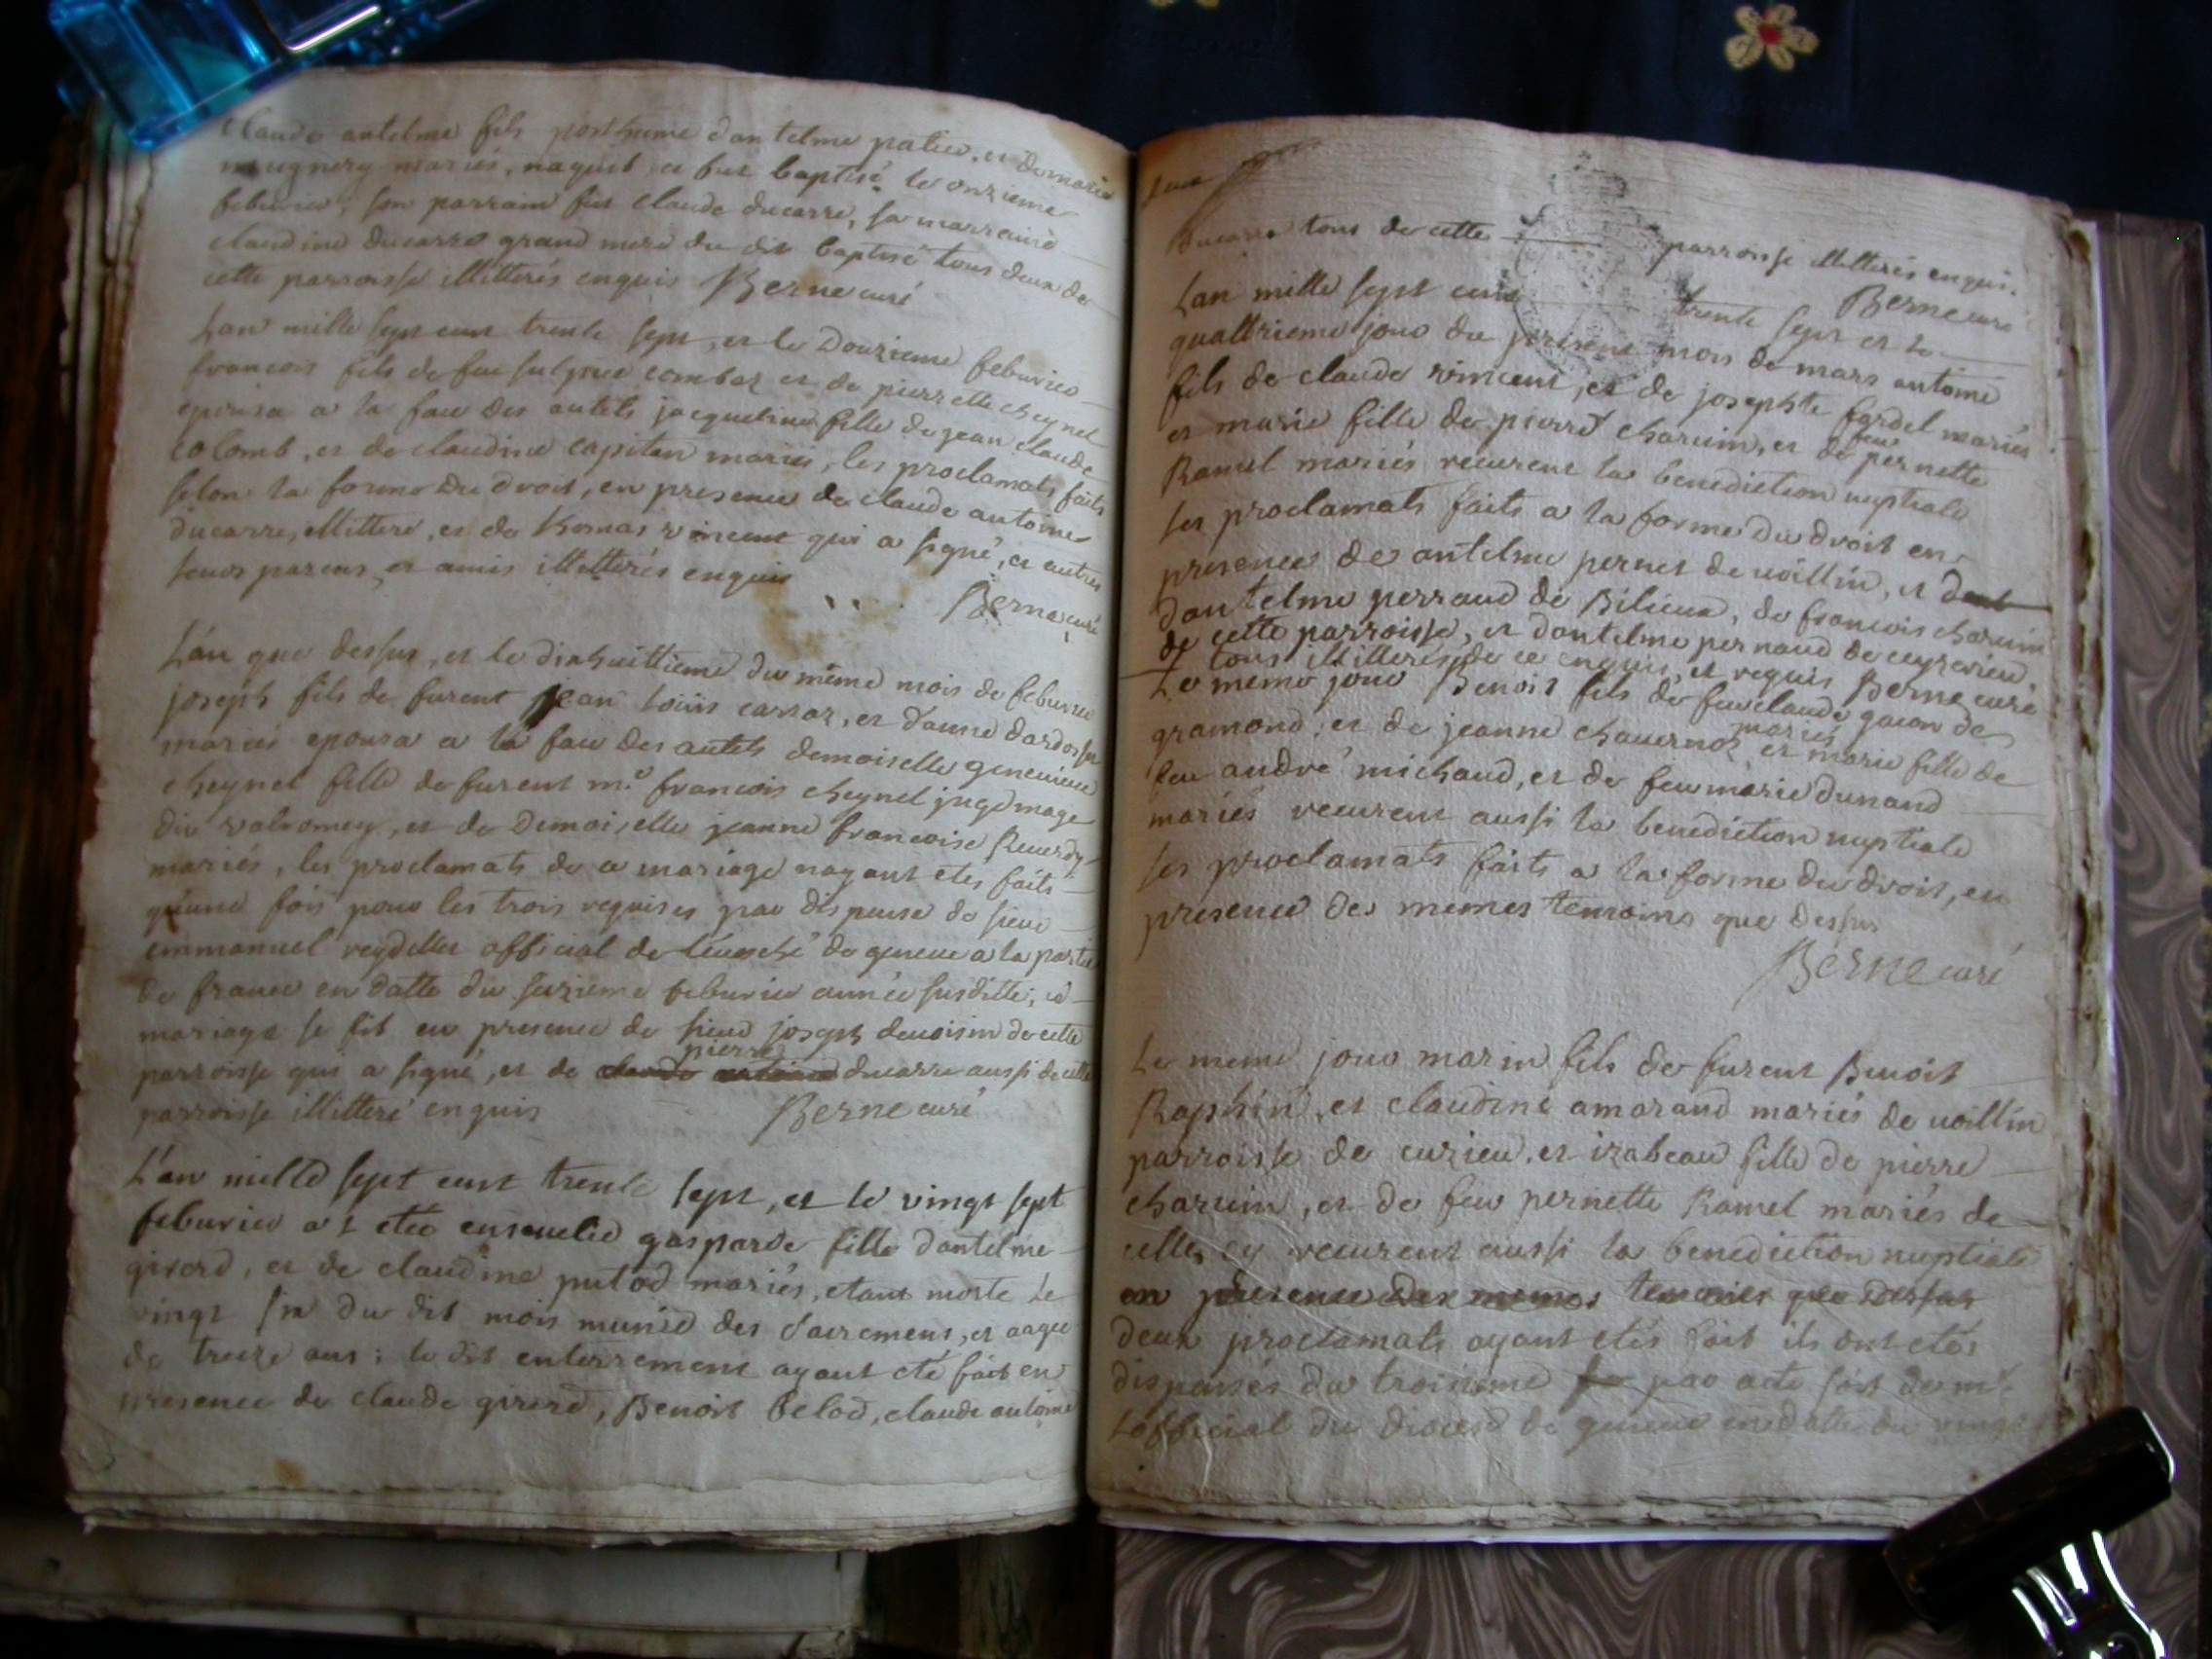 Claude antelme fils posthume dantelme patieu, et de marie
meugnery mariés, naquit et fut baptisé le onzieme
feburier, son parrain fut claude ducarre, sa marraine
claudine ducarre grand mere du dit baptisé tous deux de
cette parroisse illitterés enquis Berne curé
Lan mille sept cent trente sept, et le Douzieme feburier
francois fils de feu sulpice combaz et de pierrette cheynel
epousa a la face des autels jacqueline fille de jean claude
colomb, et de claudine capitan mariés, les proclamats faits
selon la forme du droit, en presence de claude antoine
ducarre, illitteré, et de Thomas vincent qui a signé, et autres
leurs parens et amis illitterés enquis
Berne curé
L'an que dessus, et le dixhuittieme du même mois de feburier
joseph fils de furent jean loüis carraz, et d'anne dardossu
mariés epousa a la face des autels demoiselle genevieve
cheynel fille de furent m.e francois cheynel juge mage
du valromey, et de Demoiselle jeanne francoise
mariés, les proclamats de ce mariage nayant etés faits
qu'une fois pour les trois requises par dispense de sieur
emmanuel reydellet official de leveché de geneve a la partie
de france en datte du seizieme feburier année susditte, ce
mariage se fit en presence de sieur joseph devoisin de cette
parroisse qui a signé, et de claude antoine pierre ducarre aussi de cette
parroisse illitteré enquis Berne curé
L'an mille sept cent trente sept, et le vingt sept
feburier a eté ensevelie gasparde fille dantelme
girerd, et de claudine putod mariés, etant morte le
vingt six du dit mois munie des sacremens, et aagée
de treize ans; le dit enterrement ayant eté fait en
presence de claude girerd, Benoit Belod, claude antoine
Ducarre tous de cette parroisse illitterés enquis.
Berne curé
Lan mille sept cent trente sept et le
quattrieme jour du present mois de mars antoine
fils de claude vincent, et de josephte fardel mariés
et marie fille de pierre charvin, et de feu pernette
Ramel mariés recurent la benediction nuptiale
les proclamats faits a la forme du droit en
presence de antelme pernet de voillin, et
dantelme perraud de Bilieux, de francois charvin
de cette parroisse, et dantelme pernaud de ceyzerieu
tous illitterés de ce enquis, et requis Berne curé
Le meme jour Benoit fils de feu claude guion de
gramond, et de jeanne chavernoz mariés et marie fille de
feu andré michaud, et de feu marie dunand
mariés recurent aussi la benediction nuptiale
les proclamats faits a la forme du droit, en
presence des memes temoins que dessus
Berne curé
Le meme jour marin fils de furent Benoit
Raphin, et claudine amarand mariés de voillin
parroisse de cuzieu, et izabeau fille de pierre
charvin, et de feu pernette Ramel mariés de
celle cy recurent aussi la benediction nuptiale
en presence des memes temoins que dessus
deux proclamats ayant etés fait ils ont etés
dispensés du troisieme par acte fait de mr
Lofficial du diocese de geneve en datte du vingt